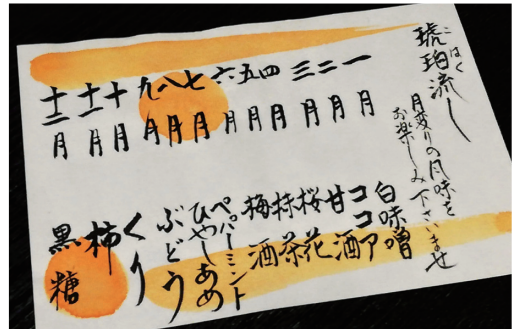 こはく
琥珀流し
月変りの風味を
お楽しみ下さいませ
一月 白味噌
二月 ココア
三月 甘酒
四月 桜花
五月 抹茶
六月 梅酒
七月 ペッパーミント
八月 ひやしあめ
九月 ぶどう
十月 くり
十一月 柿
十二月 黒糖